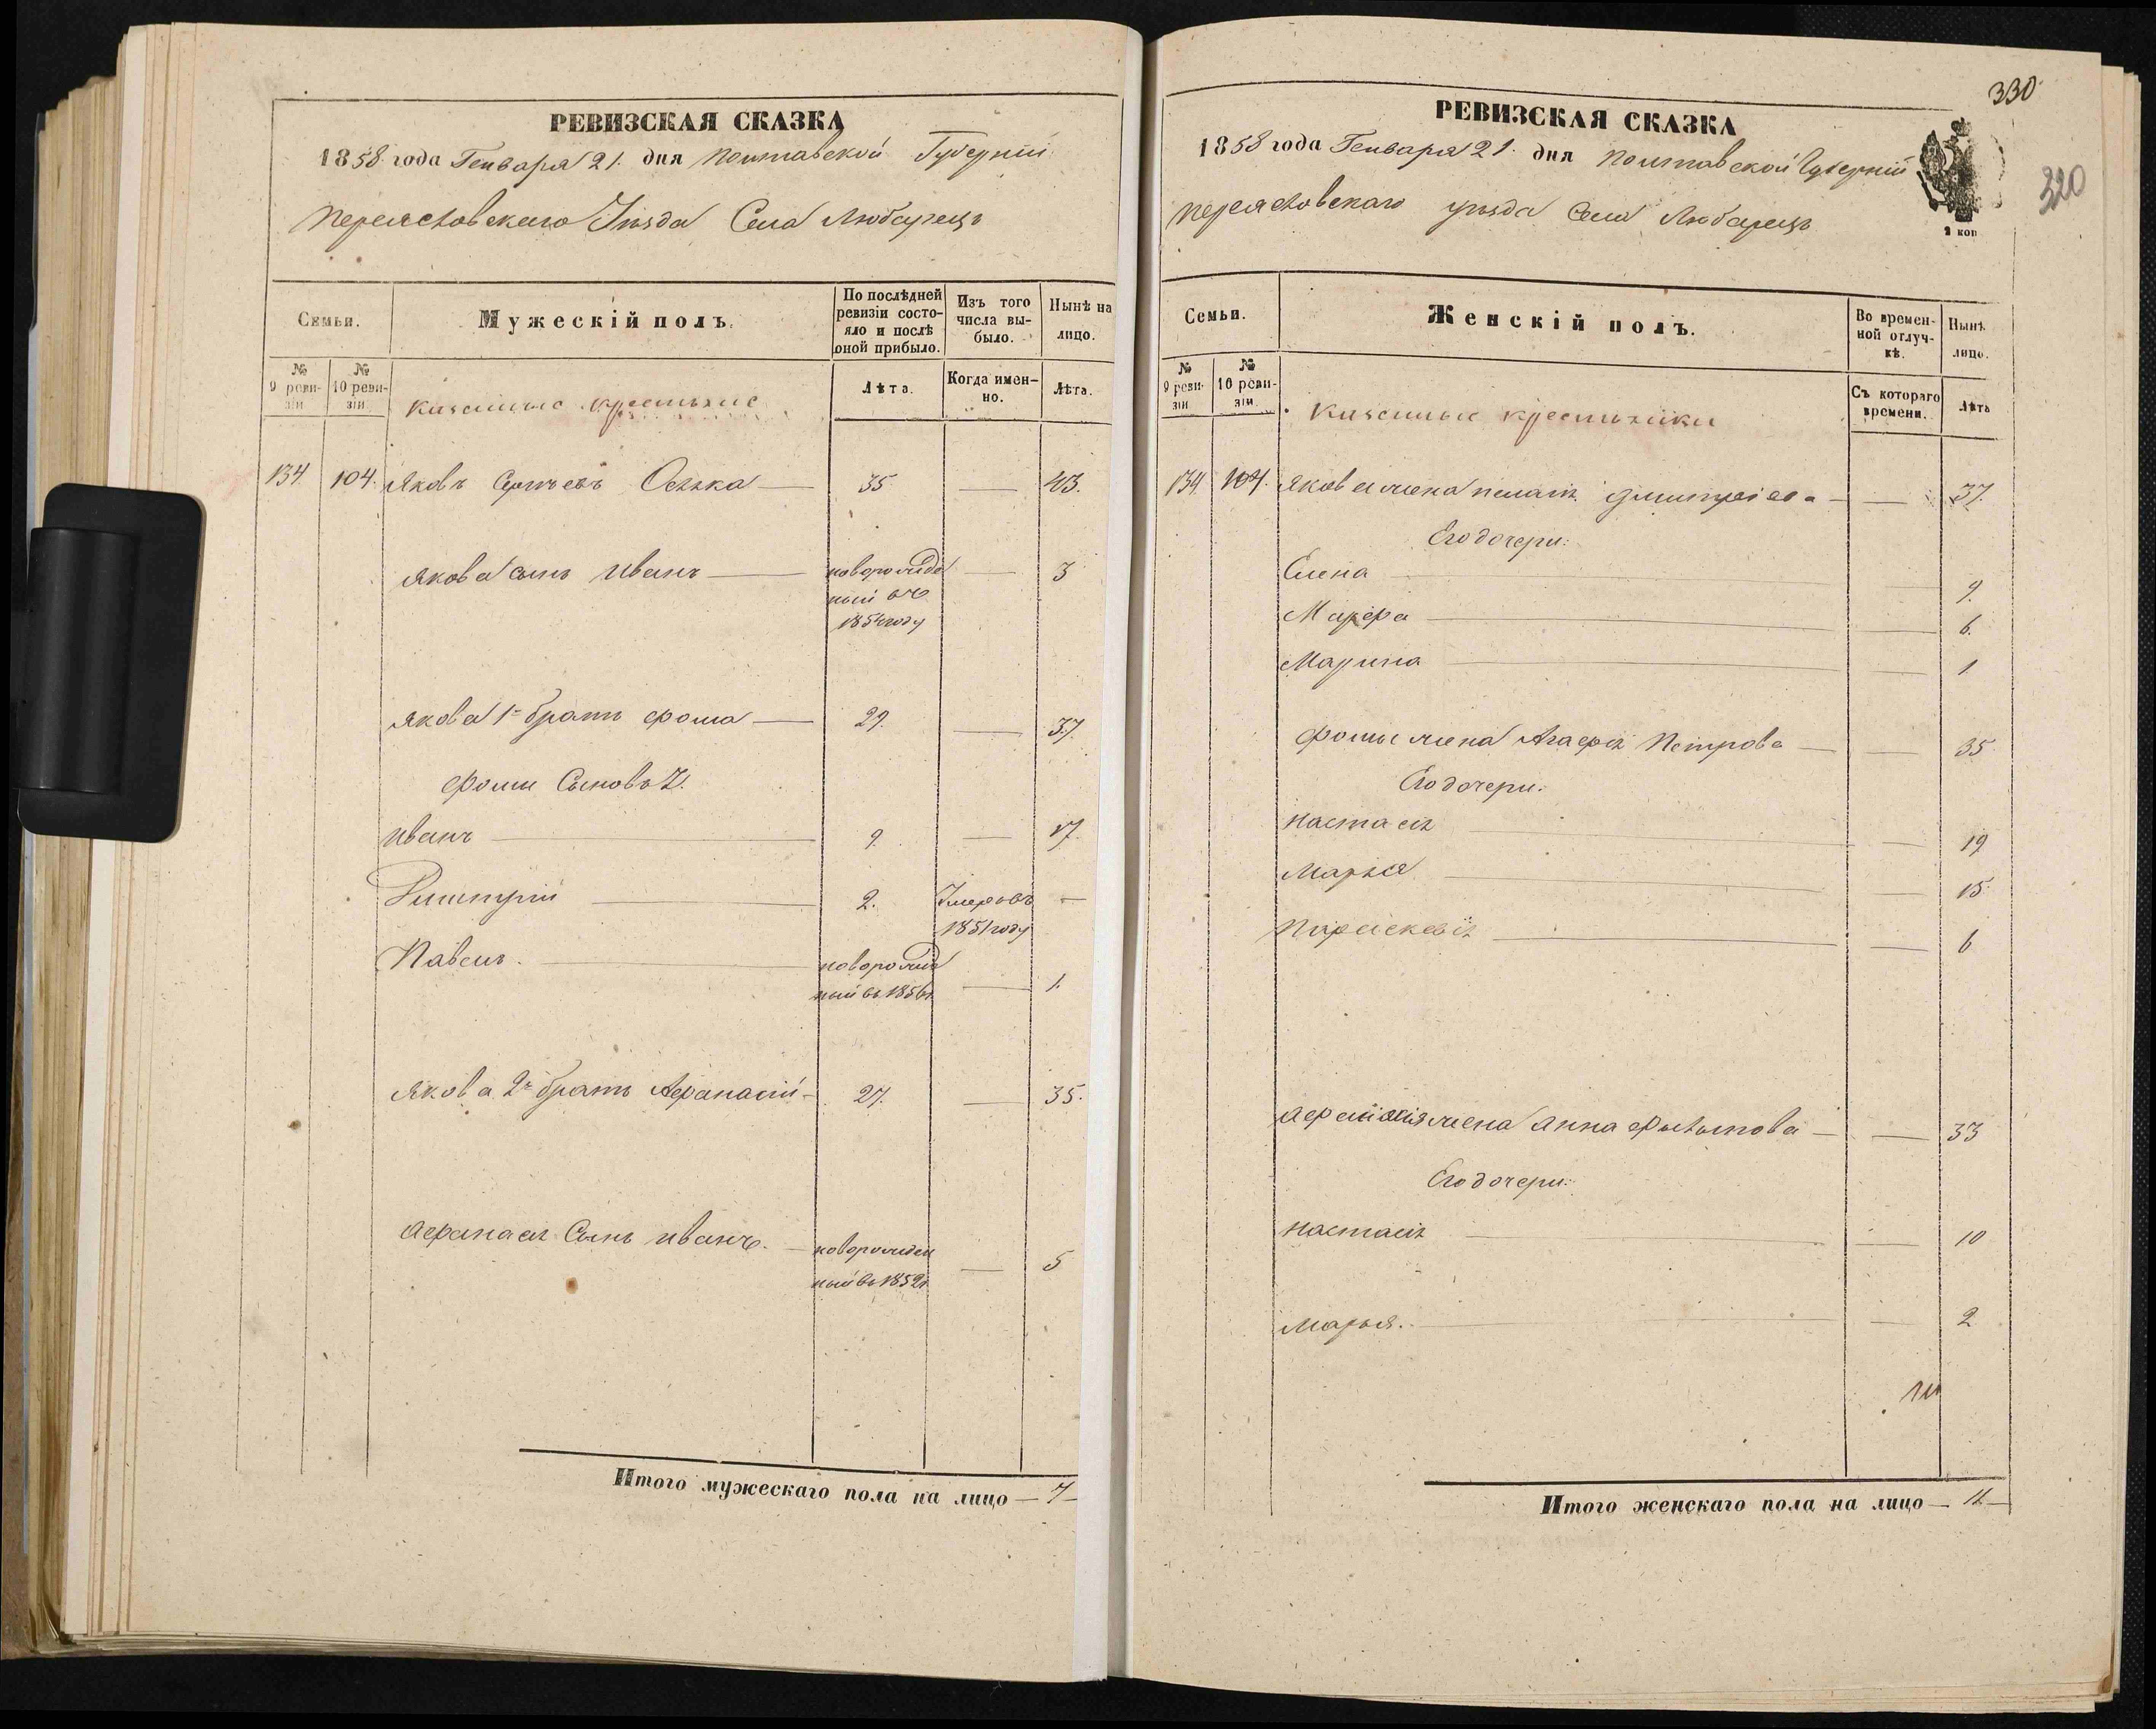 РЕВИЗСКАЯ СКАЗКА
1858 года Генваря 21. дня Полтавской Губерніи
Переясловскаго Уѣзда Села Любарецъ
Семьи.
Мужескій полъ.
По послѣдней ревизіи состояло и послѣ оной прибыло.
Изъ того числа выбыло.
Нынѣ на лицо.
№ 9 ревизіи
№ 10 ревизіи
Казенные крестьяне
Лѣта.
Когда именно.
Лѣта.
134 104. Яковъ Сергѣевъ 35 — 43.
Якова сынъ Иванъ — новорожден — 3
ный въ
1854 году
Якова 1й братъ Фома — 29. — 37.
Фомы Сыновья.
Иванъ — 9. — 17.
Дмитрій — 2. Умеръ въ —
1851 году
Павелъ. — новорожден
ный въ 1856 г. — 1.
Якова 2й братъ Афанасій — 27. — 35.
Афанасія Сынъ Иванъ. — новорожден
ный въ 1852 г. — 5
Итого мужескаго пола на лицо — 7 —
330
320
РЕВИЗСКАЯ СКАЗКА
1858 года Генваря 21. дня Полтавской Губерніи
Переясловскаго уѣзда Села Любарецъ
2 коп
Семьи.
Женскій полъ.
Во временной отлучкѣ.
Нынѣ лицо.
№ 9 ревизіи
№ 10 ревизіи
Казенные крестьянки
Съ котораго времени.
Лѣта
134. 104. Якова жена Пелагія Дмитріева — — 37.
Его дочери:
Елена — — 9.
Марфа — — 6.
Марина — — 1
Фомы жена Агафія Петрова — — 35
Его дочери:
Настасія — — 19
Марья — — 15.
Параскевія — — 6
Афанасія жена Анна — — 33
Его дочери:
Настасія — — 10
Марья. — — 2
Итого женскаго пола на лицо — 11 —